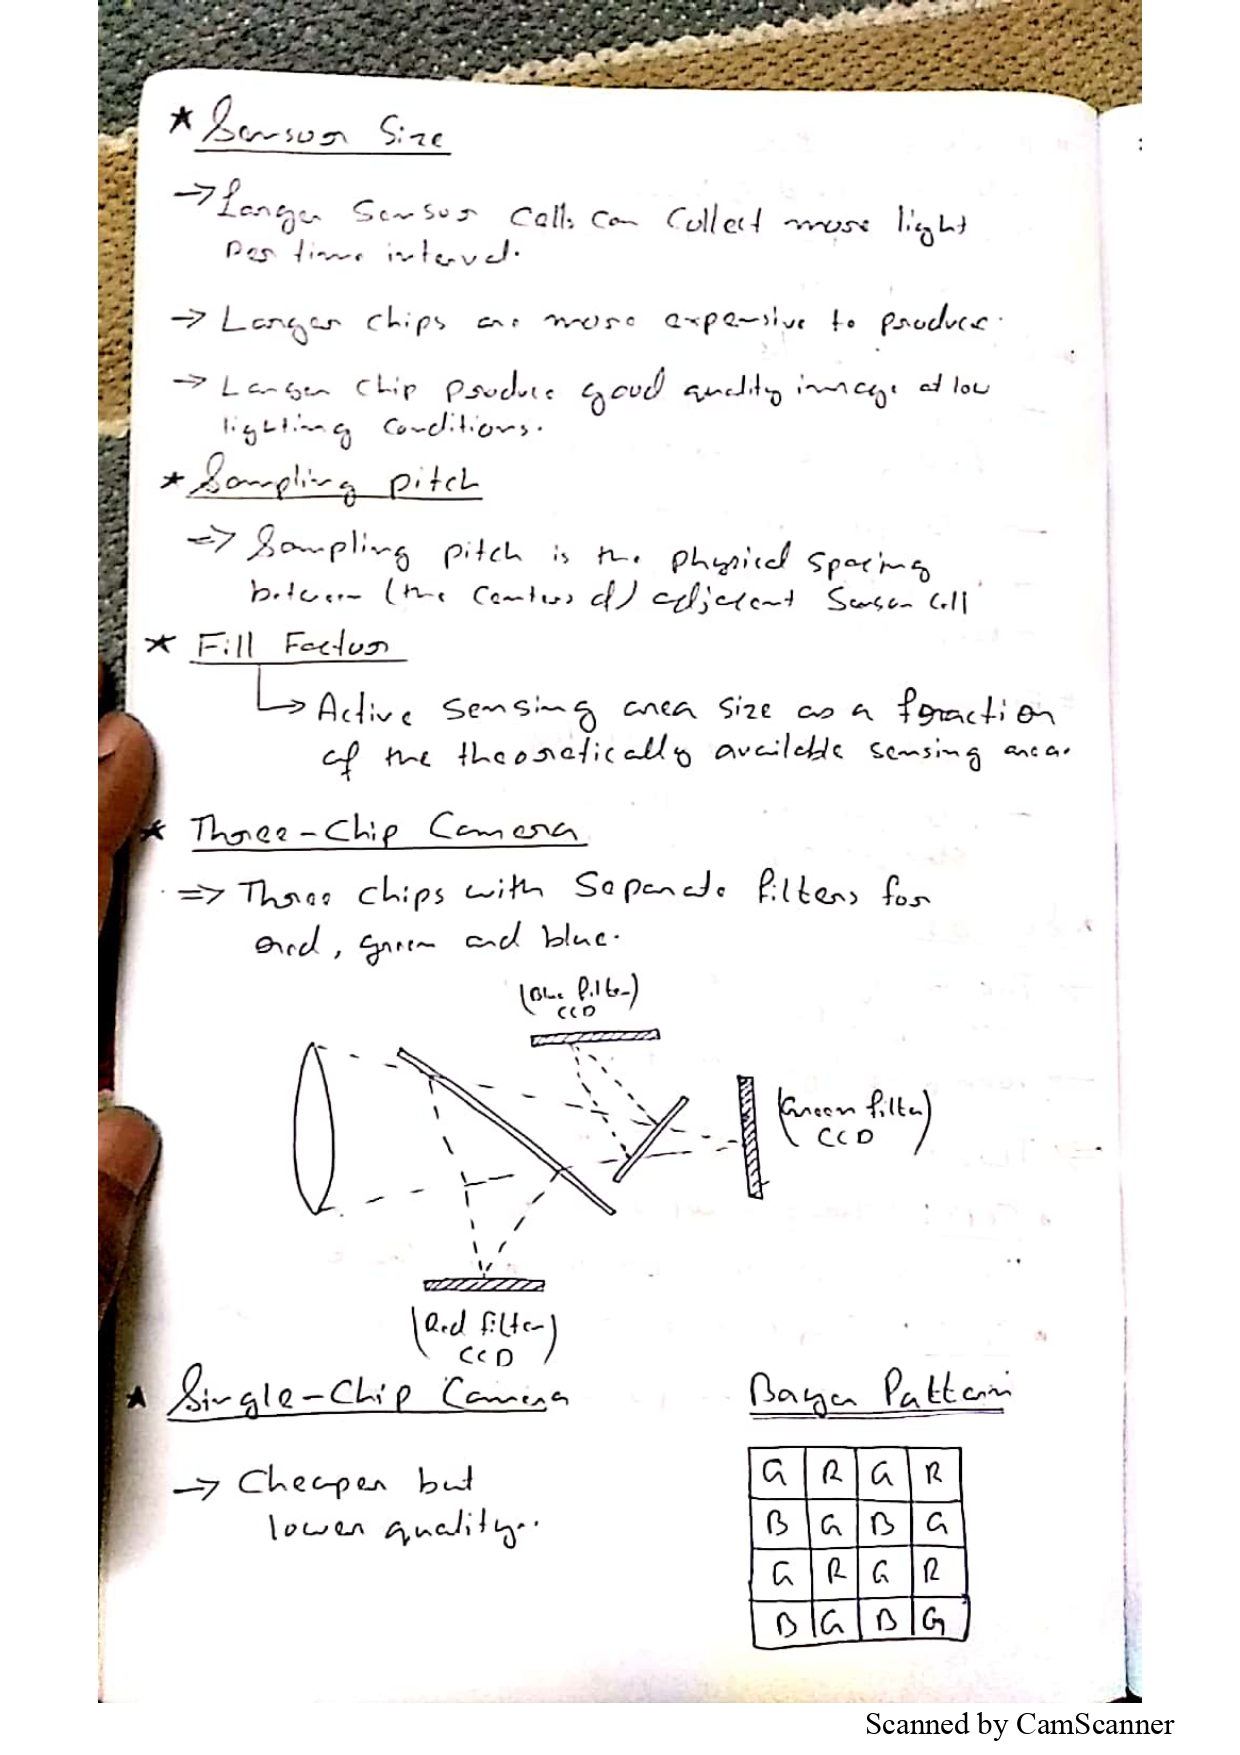 ★ Sensor Size
→ Larger Sensor cells can collect more light
per time interval.
→ Larger chips are more expensive to produce.
→ Larger chip produce good quality image at low
lighting conditions.
★ Sampling pitch
⇒ Sampling pitch is the physical spacing
between (the centers of) adjacent Sensor cell
★ Fill Factor
↳ Active sensing area size as a fraction
of the theoretically available sensing area.
★ Three-Chip Camera
⇒ Three chips with Separate filters for
red, green and blue.
(Blue filter)
CCD
(Green filter)
CCD
(Red filter)
CCD
★ Single-Chip Camera
→ Cheaper but
lower quality..
Bayer Pattern
G R G R
B G B G
G R G R
B G B G
Scanned by CamScanner